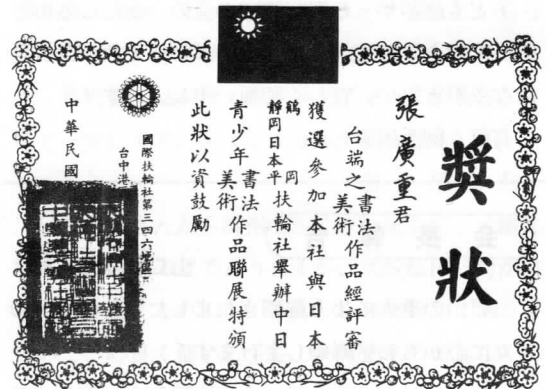 獎狀
張廣重君
台端之書法美術作品經評審
獲選參加本社與日本
鶴岡靜岡日本平扶輪社舉辦中日
青少年書法美術作品聯展特頒
此狀以資鼓勵
國際扶輪社第三四六
台中港
中華民國